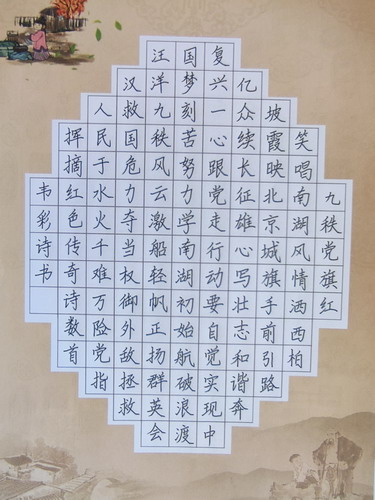 九秩党旗红
笑唱南湖风情洒西柏
坡霞映北京城旗手前引路
亿众续长征雄心写壮志和谐奔
复兴一心跟党走行动要自觉实现中
国梦刻苦努力学南湖初始航破浪渡
汪洋九秩风云激船轻帆正扬群英会
汉救国危力夺当权御外敌拯救
人民于水火千难万险党指
挥摘红色传奇诗数首
韦彩诗书